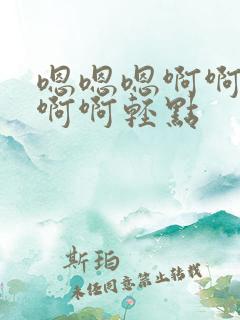 嗯嗯嗯啊啊
啊啊轻點
斯珀
未经同意禁止转载